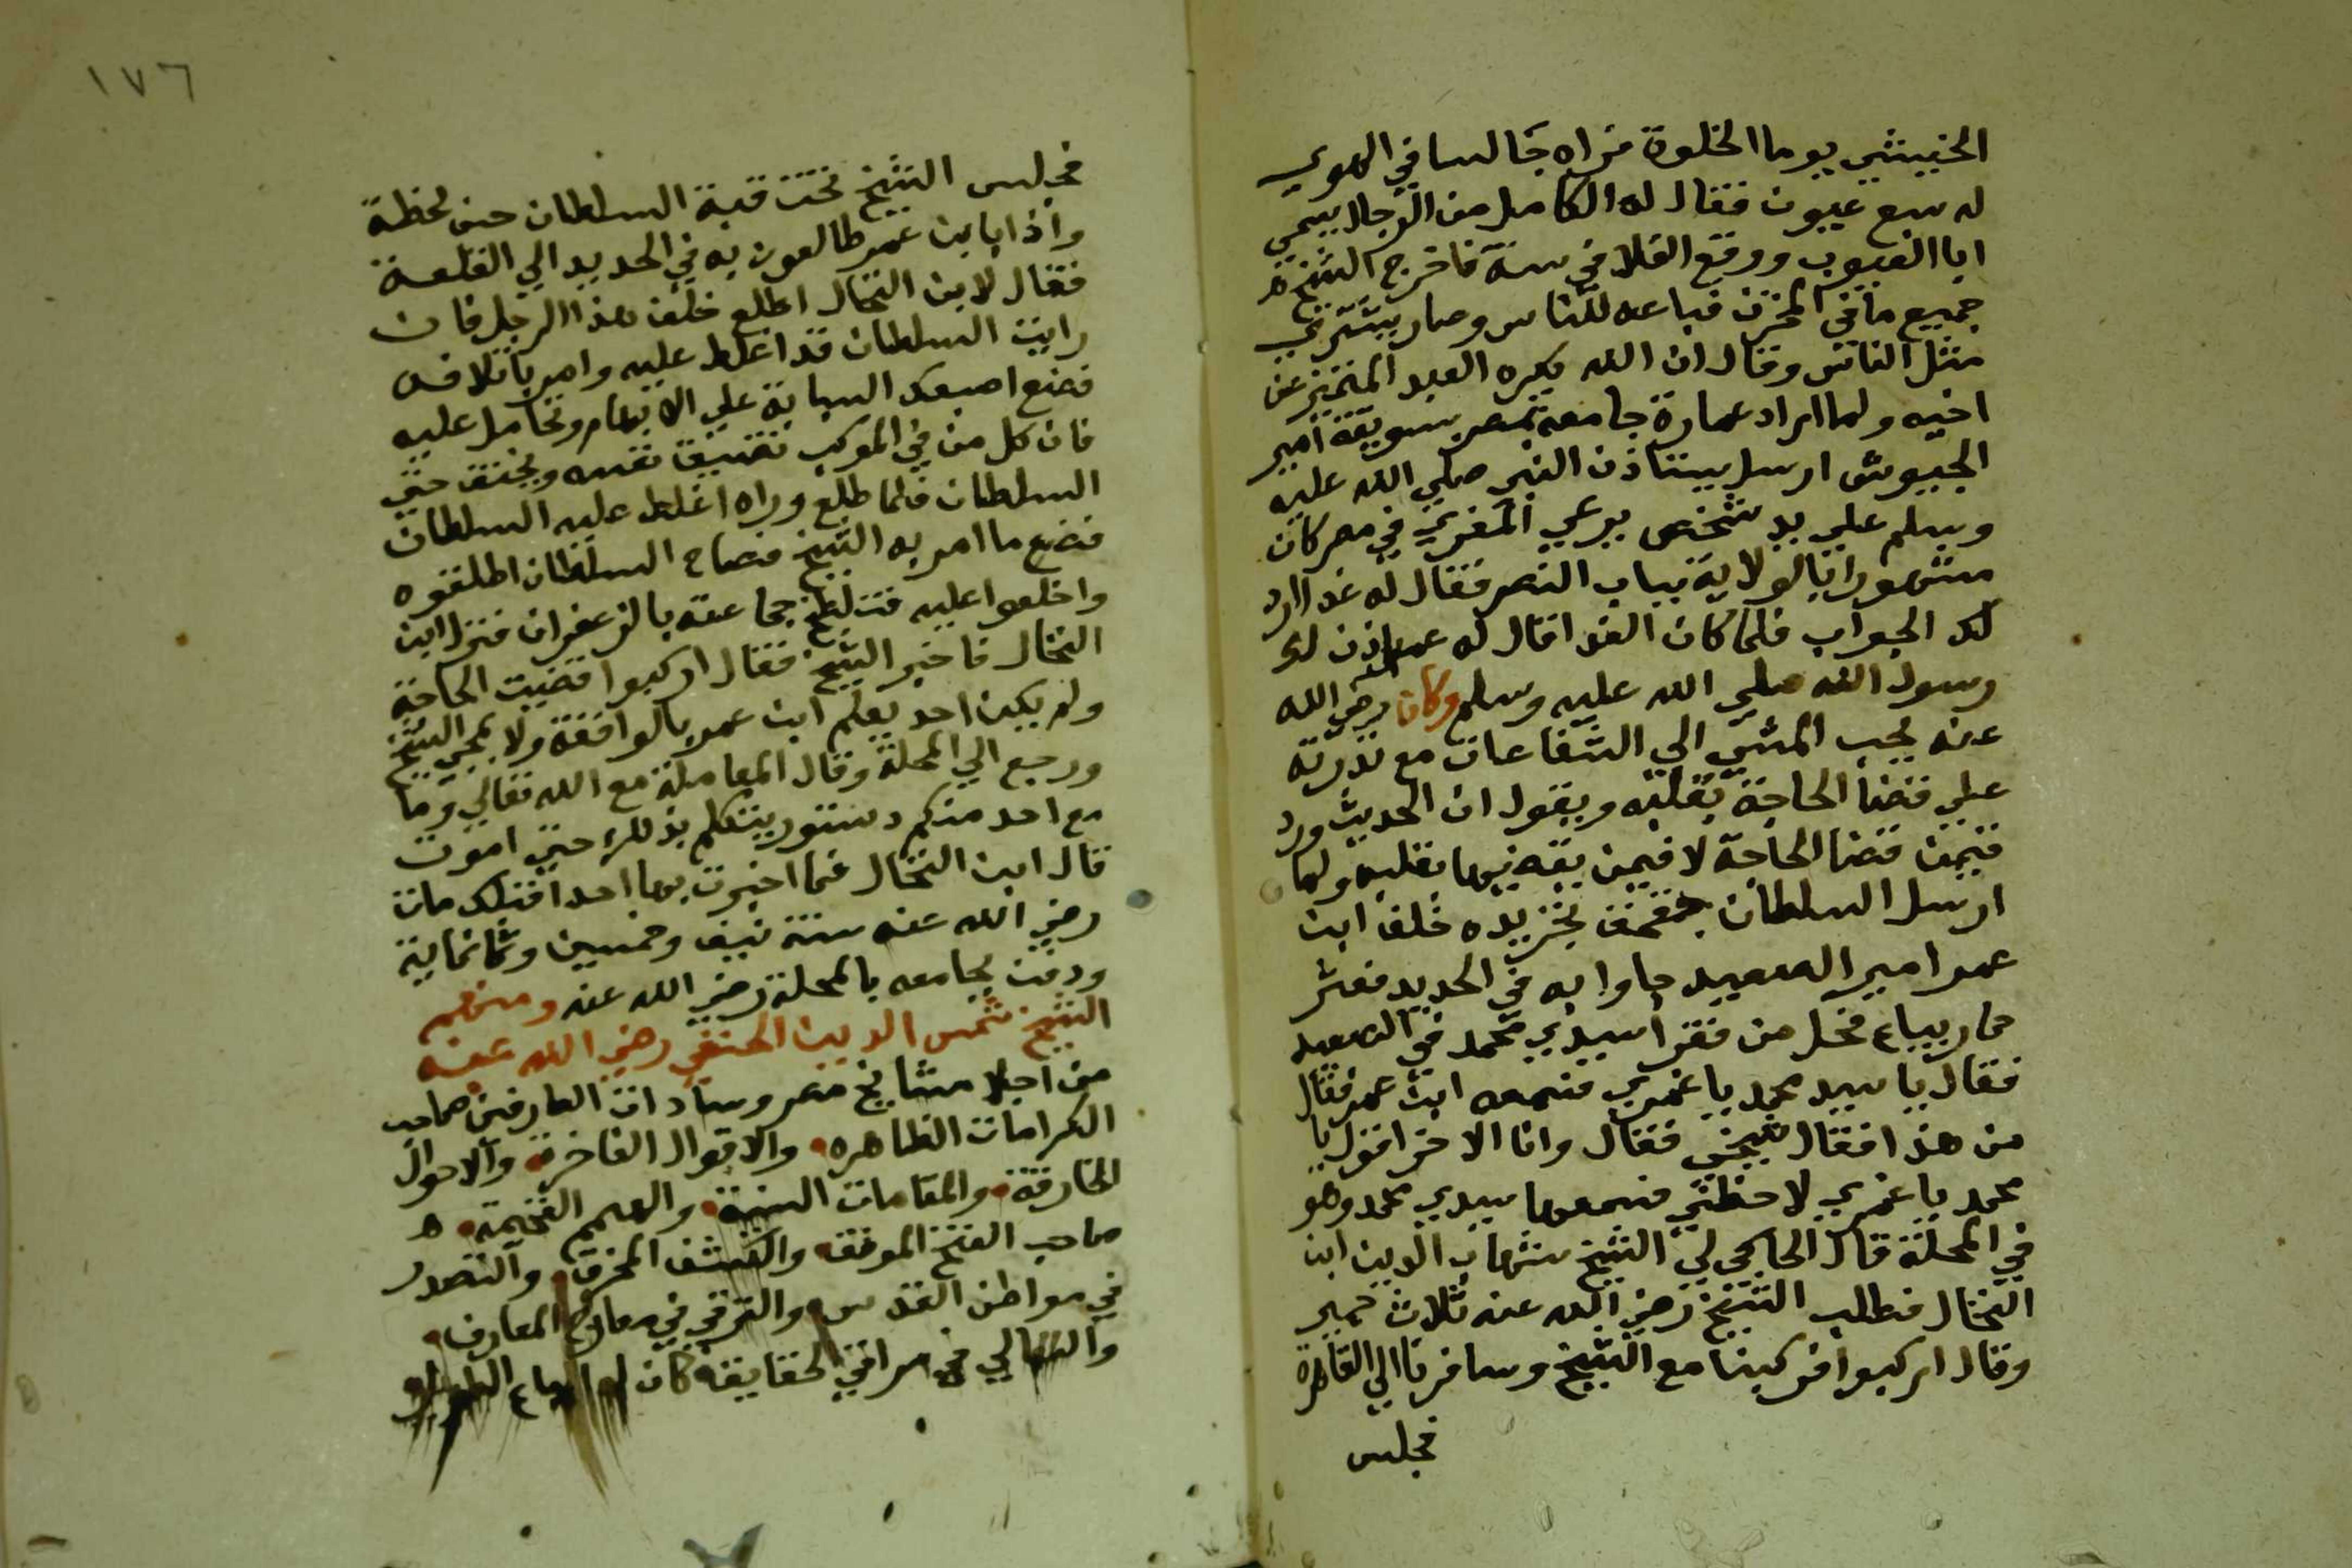 الخبيشي يوما الخلوة فراه جالسا في الهوي
له سبع عيون فقال له الكامل من الرجال يسمي
ابا العيون ووقع الغلا في سنة فاخرج الشيخ
جميع ما في المخزن فباعه للناس وصار يشتري
مثل الناس وقال ان الله يكره العبد المتميز عن
اخيه ولما اراد عمارة جامعه بمصر بسويقة امير
الجيوش ارسل يستاذن النبي صلي الله عليه
وسلم علي يد شخص يدعي المغربي في مصر كان
مشهورا بالولاية بباب النصر فقال له غدا ارد
لك الجواب فلما كان الغد قال له عمر اذن لك
رسول الله صلي الله عليه وسلم وكان رضي الله
عنه يحب المشي الي الشفاعات مع قدرته
علي قضا الحاجة بقلبه ويقول ان الحديث ورد
فيمن قضا الحاجة لا فيمن بقه فيها بقلبه ولما
ارسل السلطان جقمق تجريده خلف ابن
عمر امير الصعيد جاوا به في الحديد فعثر
حمار بباع فجل من فقرا سيدي محمد في الصعيد
فقال يا سيد محمد يا غمري فسمعه ابن عمر فقال
من هذا فقال شيخي فقال وانا الاخر اقول يا
محمد يا غمري لاحظني فسمعها سيدي محمد وهو
في المحلة قال الحاكي لي الشيخ شهاب الدين ابن
النخال فطلب الشيخ رضي الله عنه ثلاث حمير
وقال اركبوا فركبنا مع الشيخ وسافرنا الي القاهرة
فجلس
١٧٦
فجلس الشيخ تحت قبة السلطان حسن لحظة
واذا بابن عمر طالعون به في الحديد الي القلعة
فقال لابن النخال اطلع خلف هذا الرجل فان
رايت السلطان قد اغلظ عليه وامر باتلافه
فضع اصبعك السبابة علي الابهام وتحامل عليه
فان كل من في الموكب تضيق نفسه ويخنق حتي
السلطان فلما طلع وراه اغلظ عليه السلطان
فصنع ما امر به الشيخ فصاح السلطان اطلقوه
واخلعوا عليه جماعته بالزعفران فنزل ابن
النخال فاخبر الشيخ فقال اركبوا قضيت الحاجة
ولم يكن احد يعلم ابن عمر بالواقعة ولا بمجي الشيخ
ورجع الي المحلة وقال المعاملة مع الله تعالي وما
مع احد منكم دستور يتكلم بذلك حتي اموت
قال ابن النخال فما اخبرت بها احدا قبلك مات
رضي الله عنه سنة نيف وخمسين وثمانماية
ودفن بجامعه بالمحلة رضي الله عنه ومنهم
الشيخ شمس الدين الحنفي رضي الله عنه
من اجلا مشايخ مصر وسادات العارفين صاحب
الكرامات الظاهره والاقوال الفاخرة والاحوال
الخارقة والمقامات السنية والهمم الفخيمة ه
صاحب الفتح الموفق والكشف المخرق والتصدر
في مواطن القدس والترقي في معارج المعارف
والتعالي في مراقي الحقايق كان له الباع الطويل